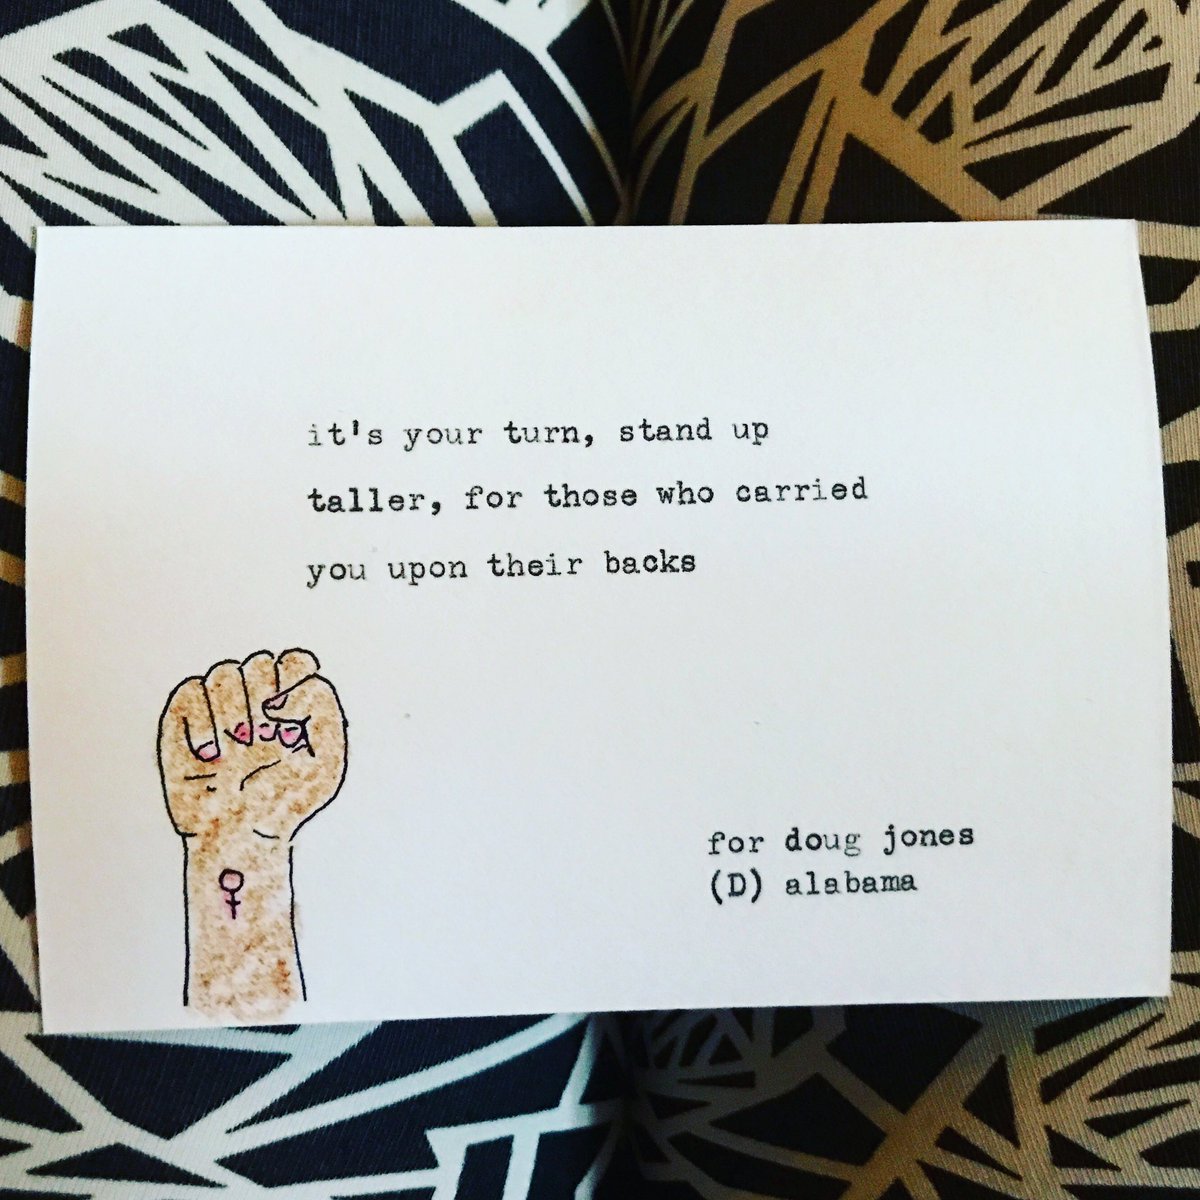 it's your turn, stand up
taller, for those who carried
you upon their backs
for doug jones
(D) alabama